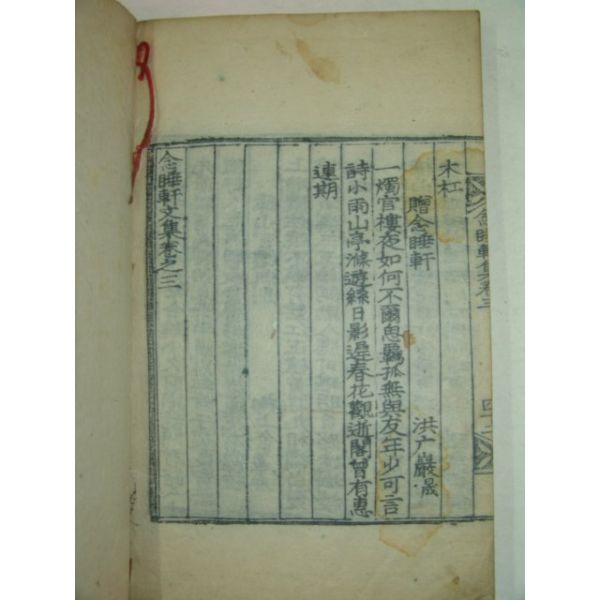 念睡軒集卷三
木杠
贈念睡軒 洪广巖晟
一燭官樓夜如何不爾思羈孤無與友年少可言
詩小雨山亭滌遊絲日影遲春花觀逝閣曾有惠
連期
念睡軒文集卷之三